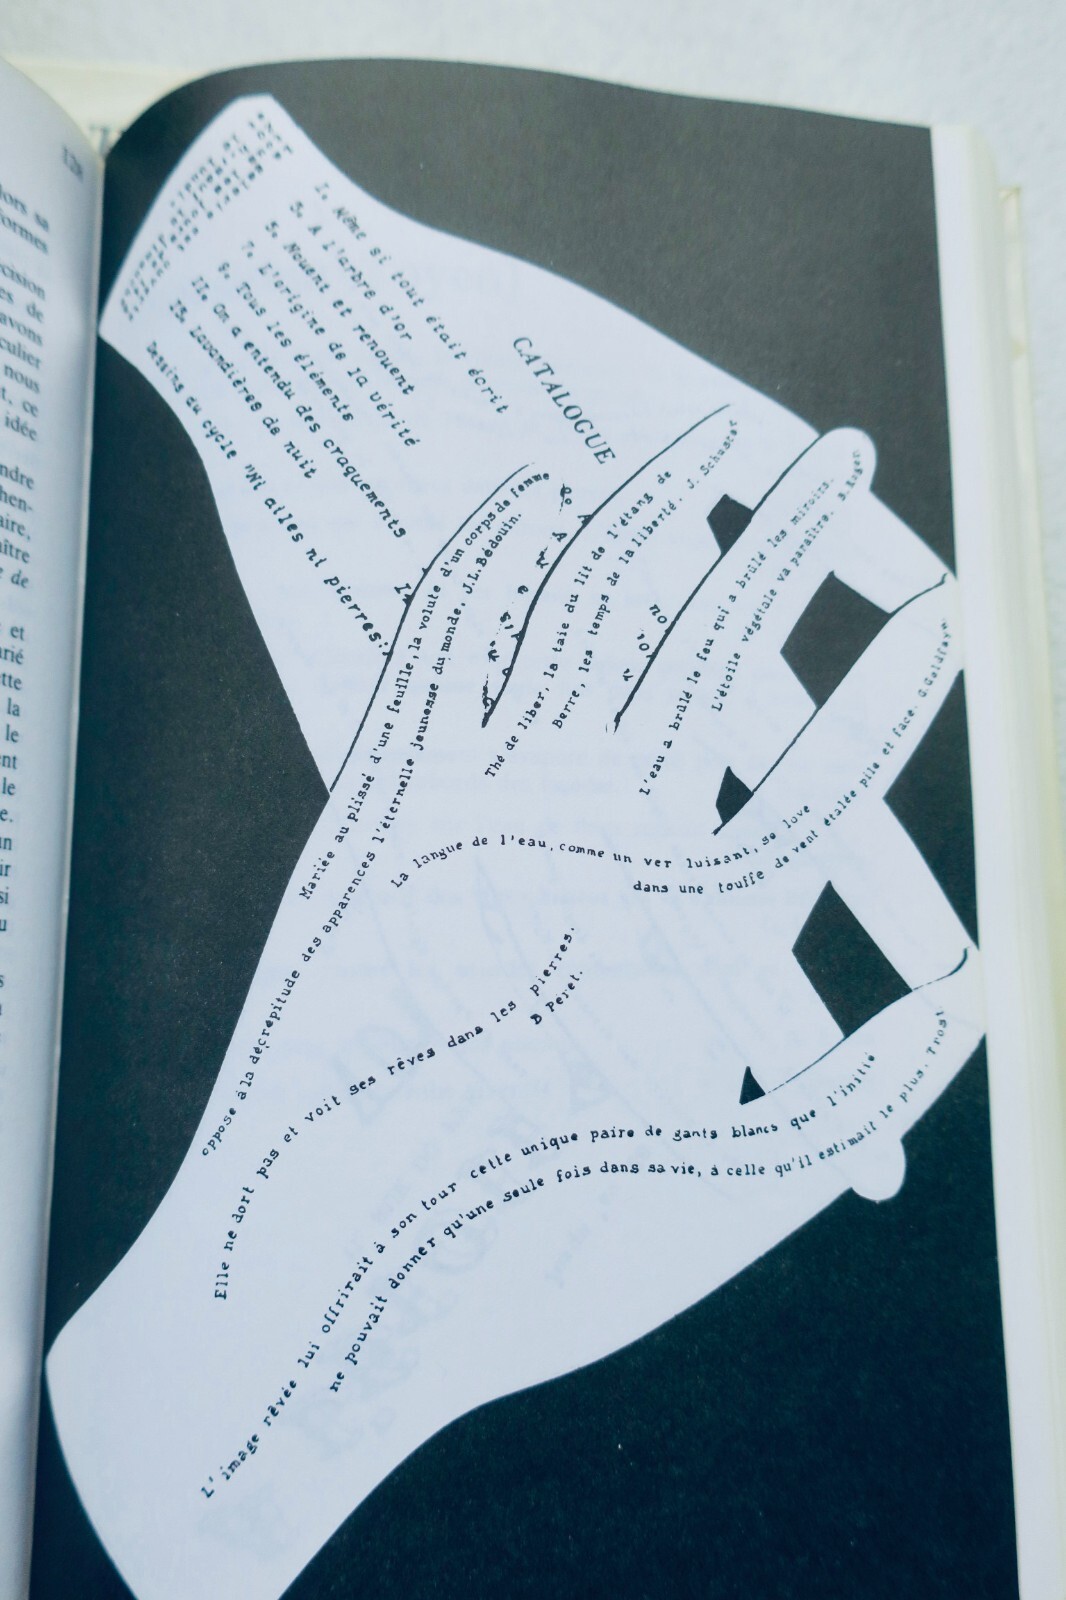 128
lors sa
formes
cision
es de
avons
culier
nous
t, ce
idée
ndre
hen-
aire,
aître
de
et
arié
ette
la
le
ent
le
e.
un
ir
si
u
CATALOGUE
1. Même si tout était écrit
3. A l'arbre d'or
5. Nouent et renouent
7. L'origine de la vérité
9. Tous les éléments
11. On a entendu des craquements
13. Lavandières de nuit
Dessins du cycle "Ni ailes ni pierres:
Mariée au plissé d'une feuille, la volute d'un corps de femme
oppose à la décrépitude des apparences l'éternelle jeunesse du monde, J.L. Bédouin.
Thé de liber, la taie du lit de l'étang de
Berre, les temps de la liberté. J. Schuster
L'eau a brûlé le feu qui a brûlé les miroirs.
L'étoile végétale va paraître. B. Roger
La langue de l'eau, comme un ver luisant, se love
dans une touffe de vent étalée pile et face. G. Goldfayn
Elle ne dort pas et voit ses rêves dans les pierres.
B Peret.
L'image rêvée lui offrirait à son tour cette unique paire de gants blancs que l'initié
ne pouvait donner qu'une seule fois dans sa vie, à celle qu'il estimait le plus. Trost